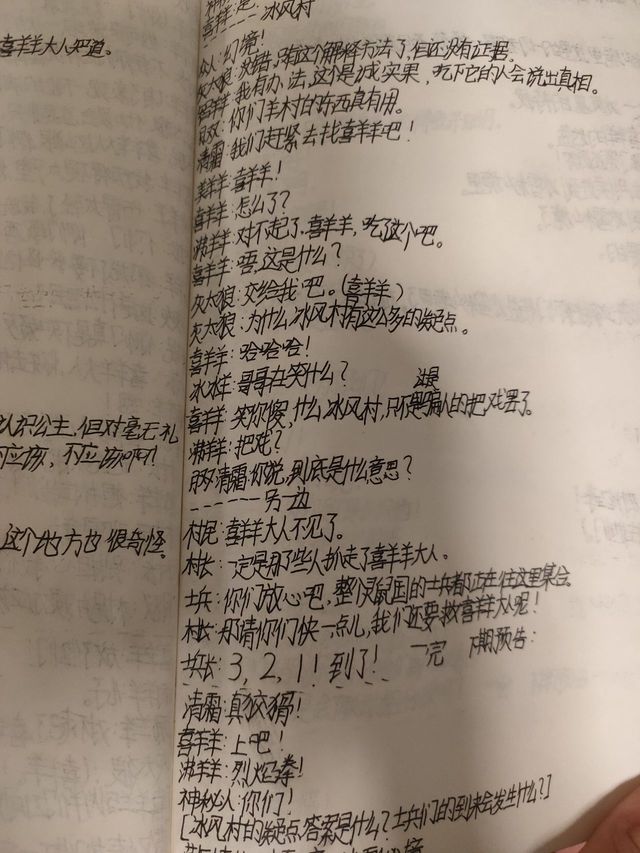 喜羊羊大人知道。
认识公主,但对毫无礼
不应该,不应该啊!
这个地方也很奇怪。
冰风村
众人:幻境!
灰太狼:没错,只有这个解释方法了,但还没有证据。
我有办法,这个是诚实果,吃下它的人会说出真相。
你们羊村的东西真有用。
清霜:我们赶紧去找喜羊羊吧!
美羊羊:喜羊羊!
喜羊羊:怎么了?
沸羊羊:对不起了,喜羊羊,吃了这个吧。
喜羊羊:唔,这是什么?
灰太狼:交给我吧。(喜羊羊)
灰太狼:为什么冰风村有这么多的疑点。
喜羊羊:哈哈哈!
冰冰羊:哥哥在笑什么?
喜羊羊:笑你傻,什么冰风村,只不是骗人的把戏罢了。
沸羊羊:把戏?
清霜:你说,到底是什么意思?
------另一边
村民:喜羊羊大人不见了。
村长:一定是那些人抓走了喜羊羊大人。
士兵:你们放心吧,整个灵鼠国的士兵都正在往这里集合。
村长:那请你们快一点儿,我们还要救喜羊羊大人呢!
士兵:3,2,1!到了! 一完 下期预告:
清霜:真狡猾!
喜羊羊:上吧!
沸羊羊:烈焰拳!
神秘人:你们!
[冰风村的疑点答案是什么?士兵们的到来会发生什么?]